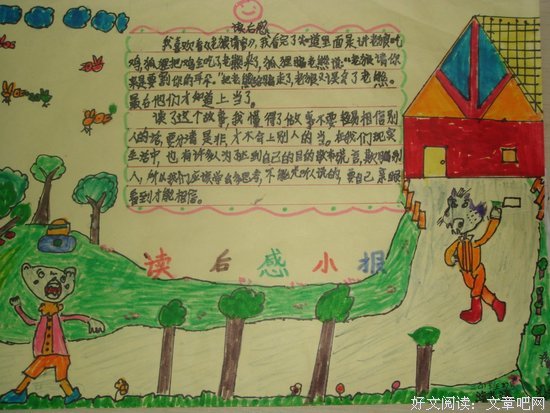 读后感
我喜欢看《老狼请客》,我看完了知道里面是讲老狼吃
鸡,狐狸把鸡全吃了,老熊来了,狐狸骗老熊说:“老狼请你
来是要割你的耳朵。”把老熊给骗走了,老狼
最后他们才知道上当了。
读了这个故事我懂得了做事不要轻易相信别
人的话,要分清是非,才不会上别人的当。在我们现实
生活中,也有许多人为达到自己的目的散布谎言,欺骗别
人,所以我们应该学会多思考,不能光听人说的,要自己亲眼
看到才能相信。
读后感小报
好文阅读:文章吧网